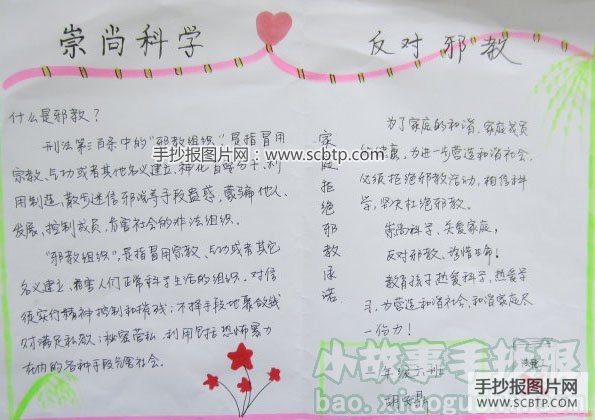 崇尚科学
反对邪教
什么是邪教？
刑法第三百条中的"邪教组织"，是指冒用
宗教、气功或者其他名义建立、神化首要分子，利
用制造、散步迷信邪说等手段蛊惑、蒙骗他人，
发展、控制成员，危害社会的非法组织。
"邪教组织"，是指冒用宗教、气功或者其它
名义建立、危害人们正常科学生活的组织。对信
徒实行精神控制和摧残；不择手段地聚敛钱
财满足私欲；秘密营私、利用包括恐怖暴力
在内的各种手段危害社会。
家庭拒绝邪教承诺
为了家庭的和谐、家庭成员
的健康，为进一步营造和谐社会，
必须拒绝邪教活动，相信科
学，坚决杜绝邪教。
崇尚科学、关爱家庭，
反对邪教、珍惜生命！
教育孩子热爱科学，热爱学
习，为营造和谐社会，和谐家庭尽
一份力！
年级六班
手抄报图片网 www.scbtp.com
小故事手抄报
手抄报图片网
WWW.SCBTP.COM